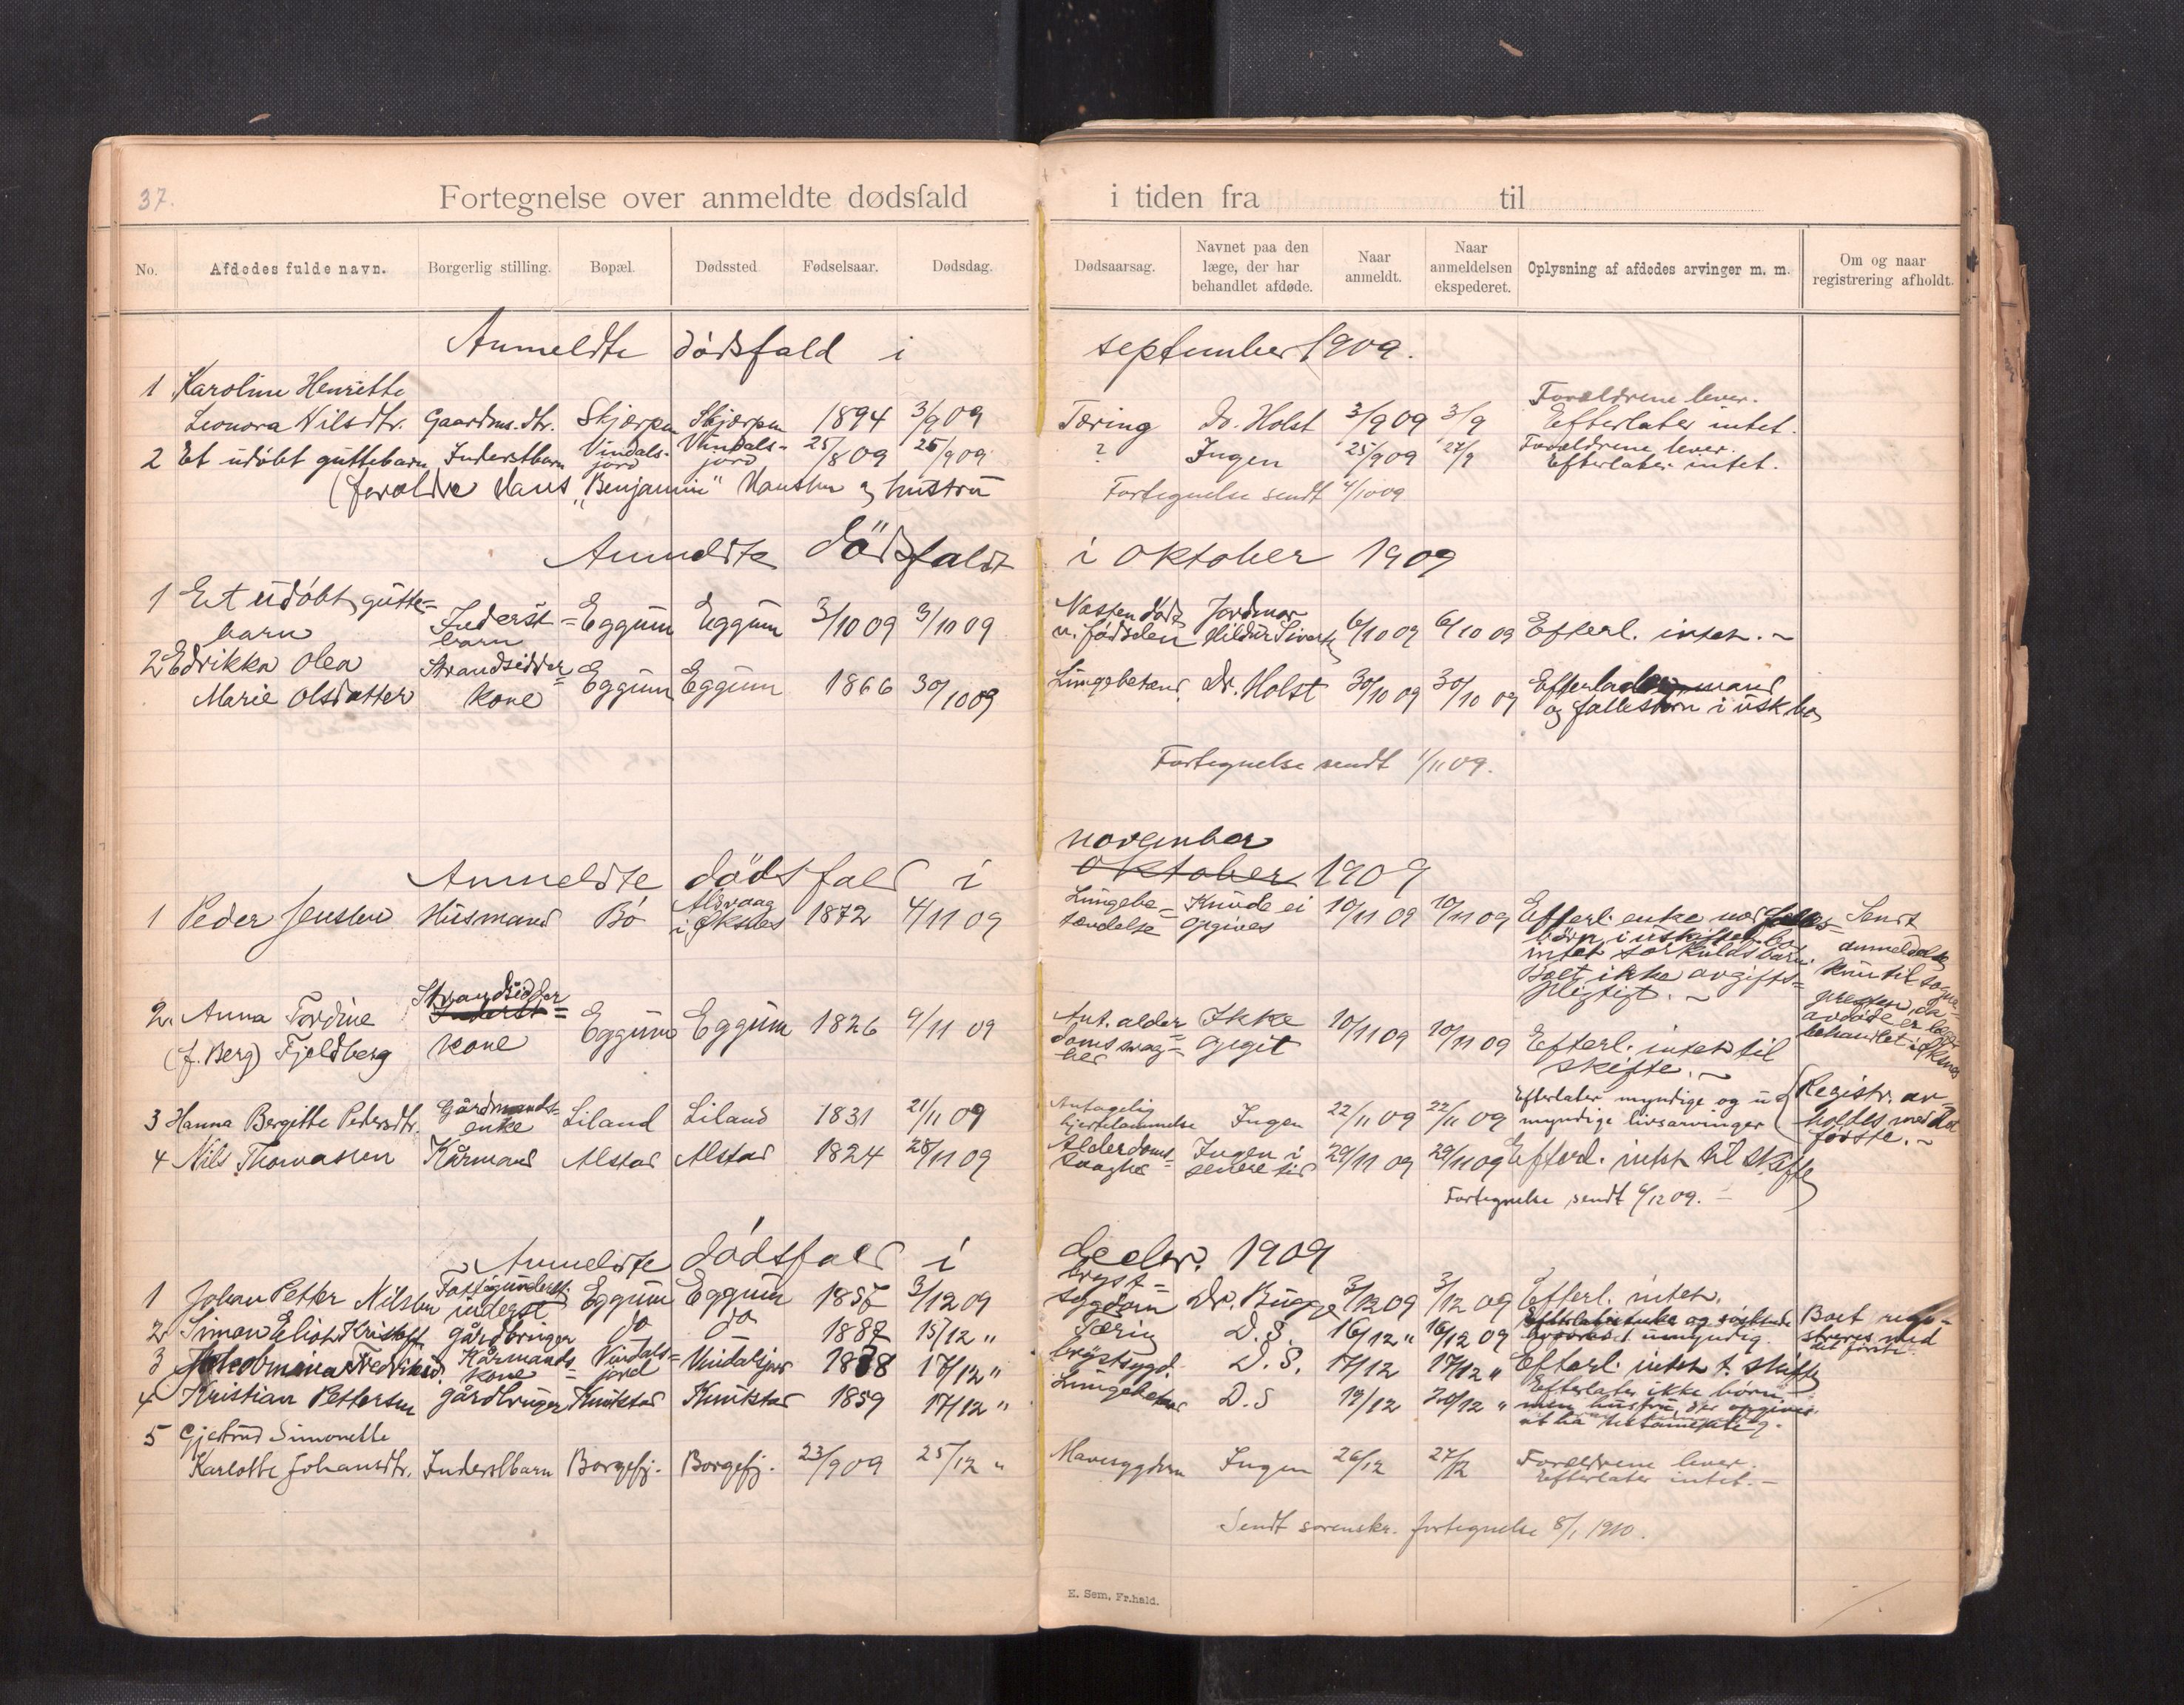 37.
Fortegnelse over anmeldte dødsfald i tiden fra til
No. Afdødes fulde navn. Borgerlig stilling. Bopæl. Dødssted Fødselsaar. Dødsdag. Dødsaarsag. Navnet paa den læge, der har behandlet afdøde. Naar anmeldt. Naar anmeldelsen ekspederet. Oplysning af afdødes arvinger m. m. Om og naar registrering afholdt.
Anmeldte dødsfald i september 1909.
1 Karoline Henritte
Leonora Nilsdtr. Gaardms. dtr. Skjerpen Skjerpen 1894 3/9 09 Tæring Dr. Holst 3/9 09 3/9 Forældrene lever. Efterlater intet.
2 Et udøbt guttebarn Inderstbarn Vindalsjord Vindalsjord 25/8 09 25/9 09 ? Ingen 25/9 09 27/9 Forældrene lever. Efterlater intet.
(forældre Hans "Benjamin" Hansen og hustru Fortegnelse sendt 4/10 09
Anmeldte dödsfald i oktober 1909
1 Et udöbt gutte=
barn Inderst=barn Eggum Eggum 3/10 09 3/10 09 Næsten død v. fødselen Jordmor Hildur Sivertsen 6/10 09 6/10 09 Efterl. intet. ~
2 Edrikka Olea
Marie Olsdatter Strandsidder=kone Eggum Eggum 1866 30/10 09 Lungebetænd. Dr. Holst 30/10 09 30/10 09 Efterlader mand
og fællesbørn i usk. bo
Fortegnelse sendt 1/11 09.
november
Anmeldte dödsfald i oktober 1909
1 Peder Jensen Husmand Bö Alsvaag i Øksnes 1872 4/11 09 Lungebe=tændelse Kunde ei opgives 10/11 09 10/11 09 Efterl. enke med fælles=
börn i uskiftet bo
intet særkuldsbarn.
Boet ikke avgifts=
pligtigt. ~
Sendt
anmeldelse
kun til sogne=
presten, da
avdøde er lægebehandlet i Øksnes
2. Anna Tordine
(f. Berg) Fjeldberg Strandsidder Inderst=kone Eggum Eggum 1826 9/11 09 Ant. alder=doms svag=hed Ikke opgit 10/11 09 10/11 09 Efterl. intet til
skifte. ~
3 Hanna Bergitte Pedersdtr. Gårdmands=enke Liland Liland 1831 21/11 09 Antagelig hjertelammelse Ingen 22/11 09 22/11 09 Efterlater myndige og u=
myndige livsarvinger
Registr. av=
holdes med det
første. ~
4 Nils Thomassen Kårmand Alstad Alstad 1824 28/11 09 Alderdoms=svaghed Ingen i senere tid 29/11 09 29/11 09 Efterl. intet til skifte
Fortegnelse sendt 6/12 09. —
Anmeldte dödsfald i decbr. 1909
1 Johan Petter Nilsen inderst Eggum Eggum 1857 3/12 09 bryst=sygdom Dr. Bugge 3/12 09 3/12 09 Efterl. intet.
2 Simon Eliot Kristoff. gårdbruger do do 1887 15/12 " Tæring D.S. 16/12 " 16/12 09 Efterlater enke og söskende
hvoraf umyndig.
Boet regi=
streres med
det første.
3 Jakobmina Fredriksd. Kårmands=kone Vindals=jord Vindalsjord 1838 17/12 " brystsygd. D.S. 17/12 17/12 " Efterl. intet t. skifte
4 Kristian Pettersen gårdbruger Knutstad Knutstad 1859 17/12 " Lungebetænd D.S 19/12 20/12 " Efterlater ikke börn
men hustru, der opgives
at ha testamente.
5 Gjertrud Simonette
Karlotte Johansdtr. Inderstbarn Borgefj. Borgefj. 23/9 09 25/12 " Mavesygdom Ingen 26/12 27/12 Forældrene lever.
Efterlater intet. —
Sendt sorenskr. fortegnelse 8/1 1910.
E. Sem, Fr.hald.